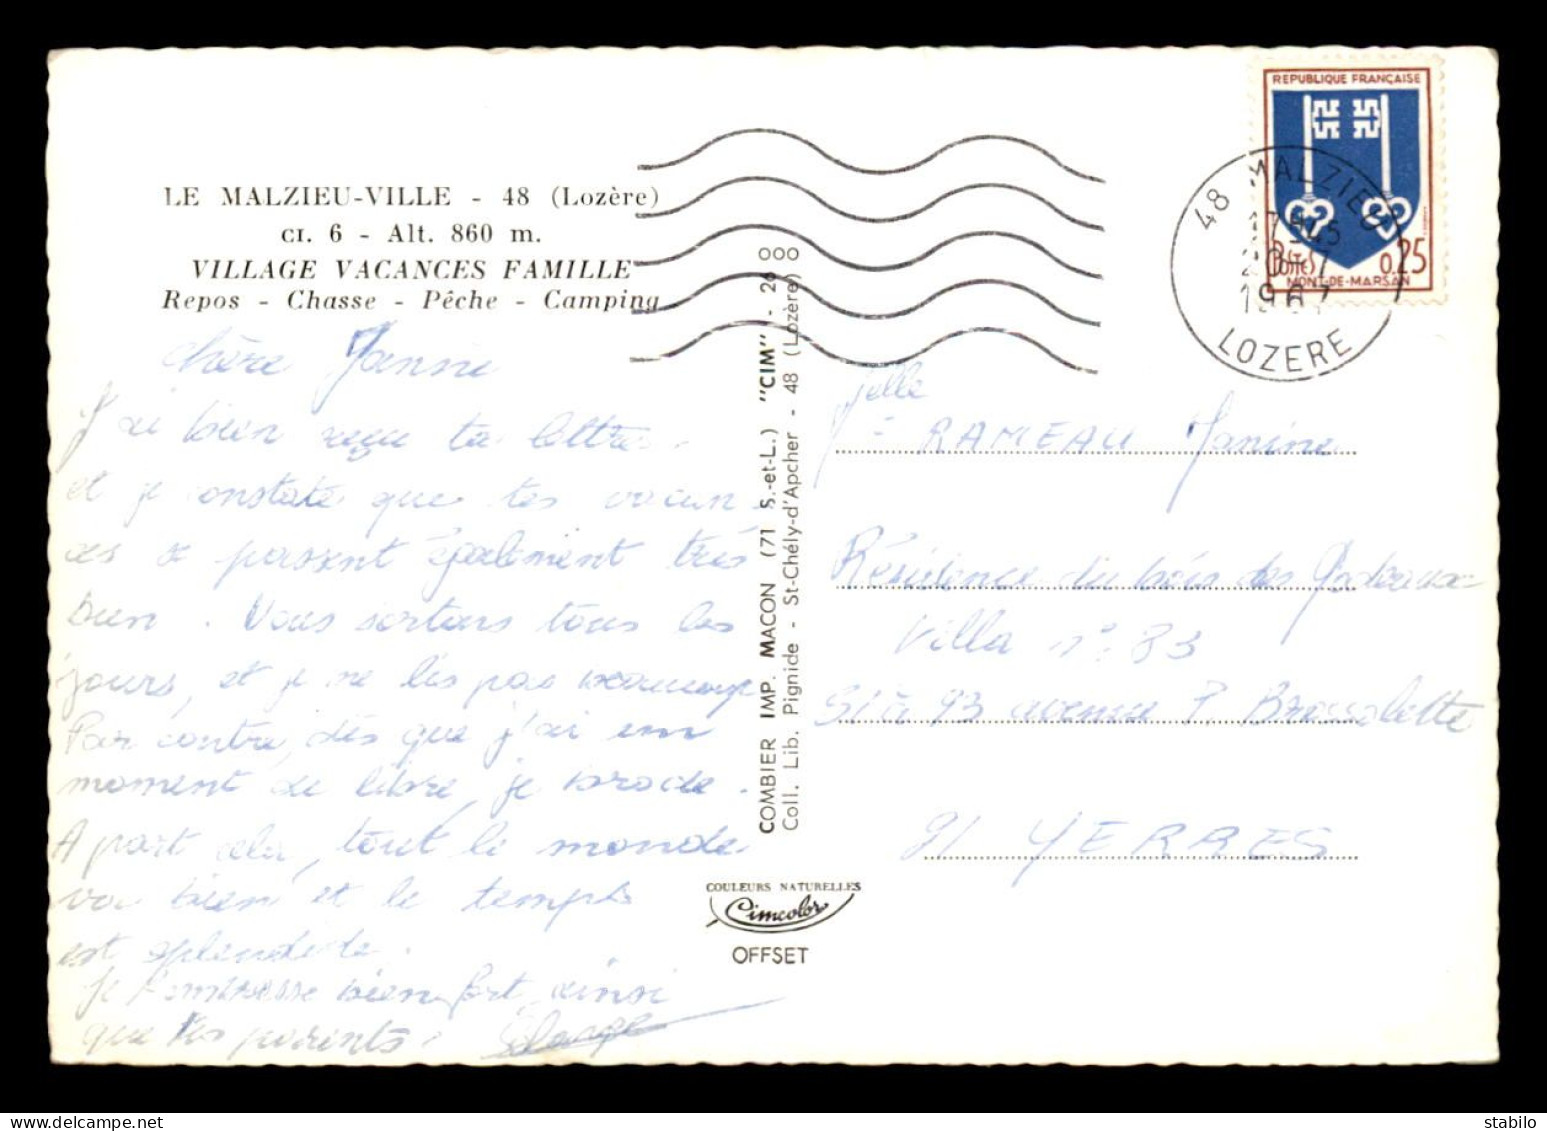 LE MALZIEU-VILLE - 48 (Lozère)
CI. 6 - Alt. 860 m.
VILLAGE VACANCES FAMILLE
Repos - Chasse - Pêche - Camping
Chère Janine
J'ai bien reçu ta lettre
et je constate que tes vacan
ces se passent également très
bien. Nous sortons tous les
jours, et je ne lis pas beaucoup
Par contre, dès que j'ai un
moment de libre, je brode.
A part cela, tout le monde
va bien et le temps
est splendide.
Je t'embrasse bien fort ainsi
que tes parents.
COMBIER IMP. MACON (71 S.-et-L.) "CIM" - 20 000
Coll. Lib. Pignide - St-Chély-d'Apcher - 48 (Lozère)
COULEURS NATURELLES
Cimcolor
OFFSET
REPUBLIQUE FRANÇAISE
POSTES 0.25
MONT-DE-MARSAN
48 MALZIEU
17H45
20-7
1967
LOZERE
Melle
RAMEAU Janine
Résidence du bois des Godeaux
Villa n° 83
Si à 93 avenue P. Brossolette
91 YERRES
www.delcampe.net
stab48